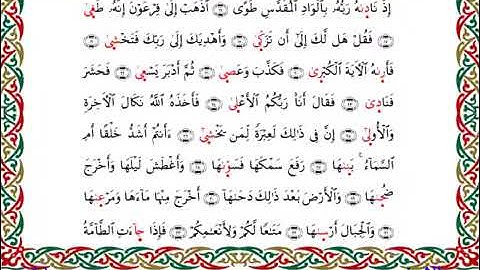 إِذْ نَادَىٰهُ رَبُّهُۥ بِٱلْوَادِ ٱلْمُقَدَّسِ طُوًى ۝ ٱذْهَبْ إِلَىٰ فِرْعَوْنَ إِنَّهُۥ طَغَىٰ
۝ فَقُلْ هَل لَّكَ إِلَىٰٓ أَن تَزَكَّىٰ ۝ وَأَهْدِيَكَ إِلَىٰ رَبِّكَ فَتَخْشَىٰ ۝
فَأَرَىٰهُ ٱلْآيَةَ ٱلْكُبْرَىٰ ۝ فَكَذَّبَ وَعَصَىٰ ۝ ثُمَّ أَدْبَرَ يَسْعَىٰ ۝ فَحَشَرَ
فَنَادَىٰ ۝ فَقَالَ أَنَا۠ رَبُّكُمُ ٱلْأَعْلَىٰ ۝ فَأَخَذَهُ ٱللَّهُ نَكَالَ ٱلْآخِرَةِ
وَٱلْأُولَىٰٓ ۝ إِنَّ فِي ذَٰلِكَ لَعِبْرَةً لِّمَن يَخْشَىٰٓ ۝ ءَأَنتُمْ أَشَدُّ خَلْقًا أَمِ
ٱلسَّمَآءُ ۚ بَنَىٰهَا ۝ رَفَعَ سَمْكَهَا فَسَوَّىٰهَا ۝ وَأَغْطَشَ لَيْلَهَا وَأَخْرَجَ
ضُحَىٰهَا ۝ وَٱلْأَرْضَ بَعْدَ ذَٰلِكَ دَحَىٰهَآ ۝ أَخْرَجَ مِنْهَا مَآءَهَا وَمَرْعَىٰهَا
۝ وَٱلْجِبَالَ أَرْسَىٰهَا ۝ مَتَٰعًا لَّكُمْ وَلِأَنْعَٰمِكُمْ ۝ فَإِذَا جَآءَتِ ٱلطَّآمَّةُ